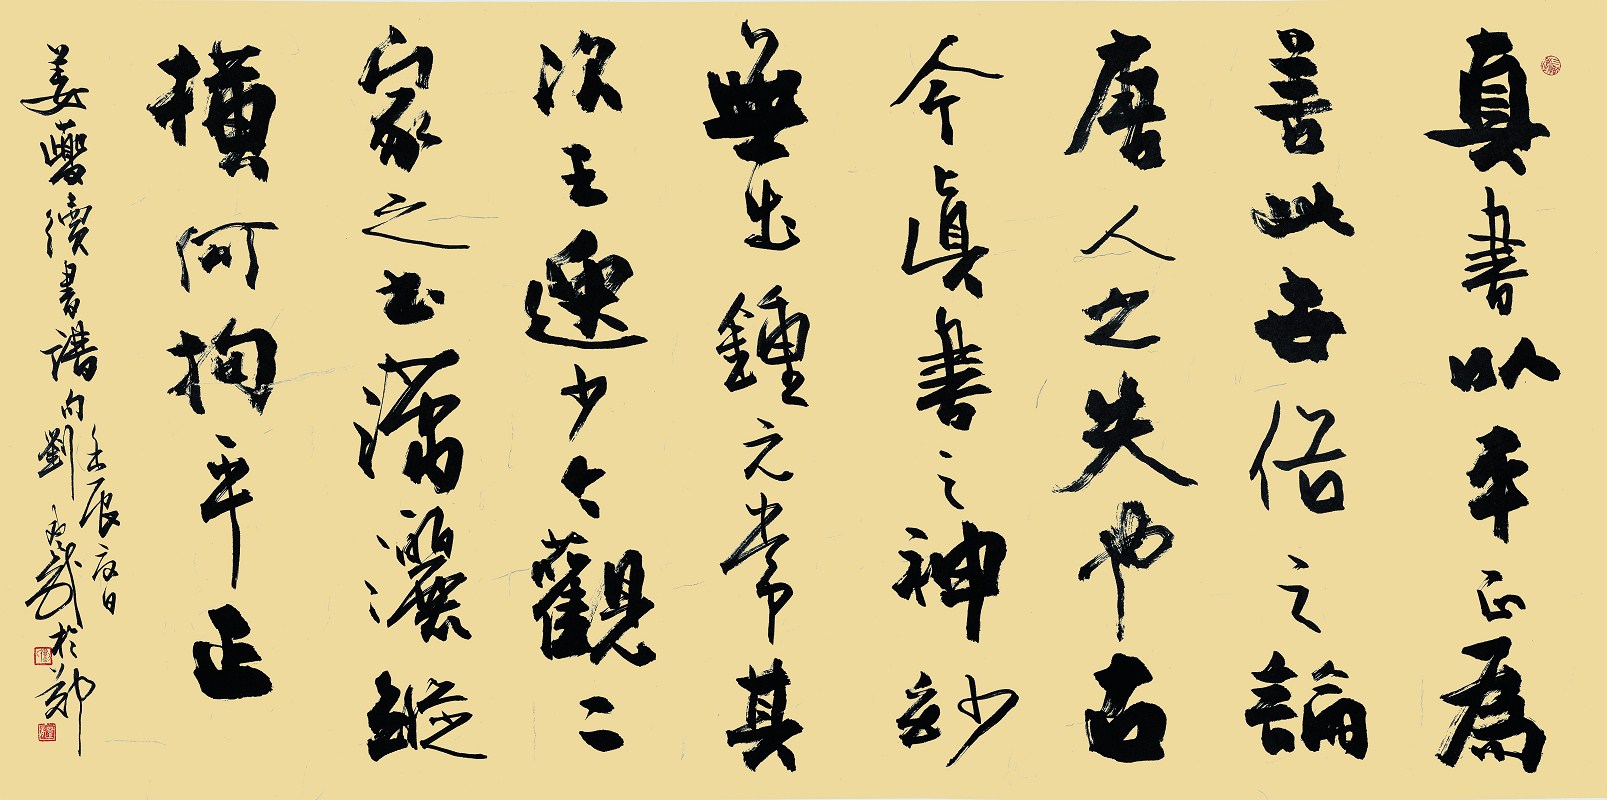 真書以平正為
善此世俗之論
唐人之失也古
今真書之神妙
無出鍾元常其
次王逸少今觀二
家之書瀟灑縱
橫何拘平正
姜夔續書譜句
壬辰夏日
劉於鄭